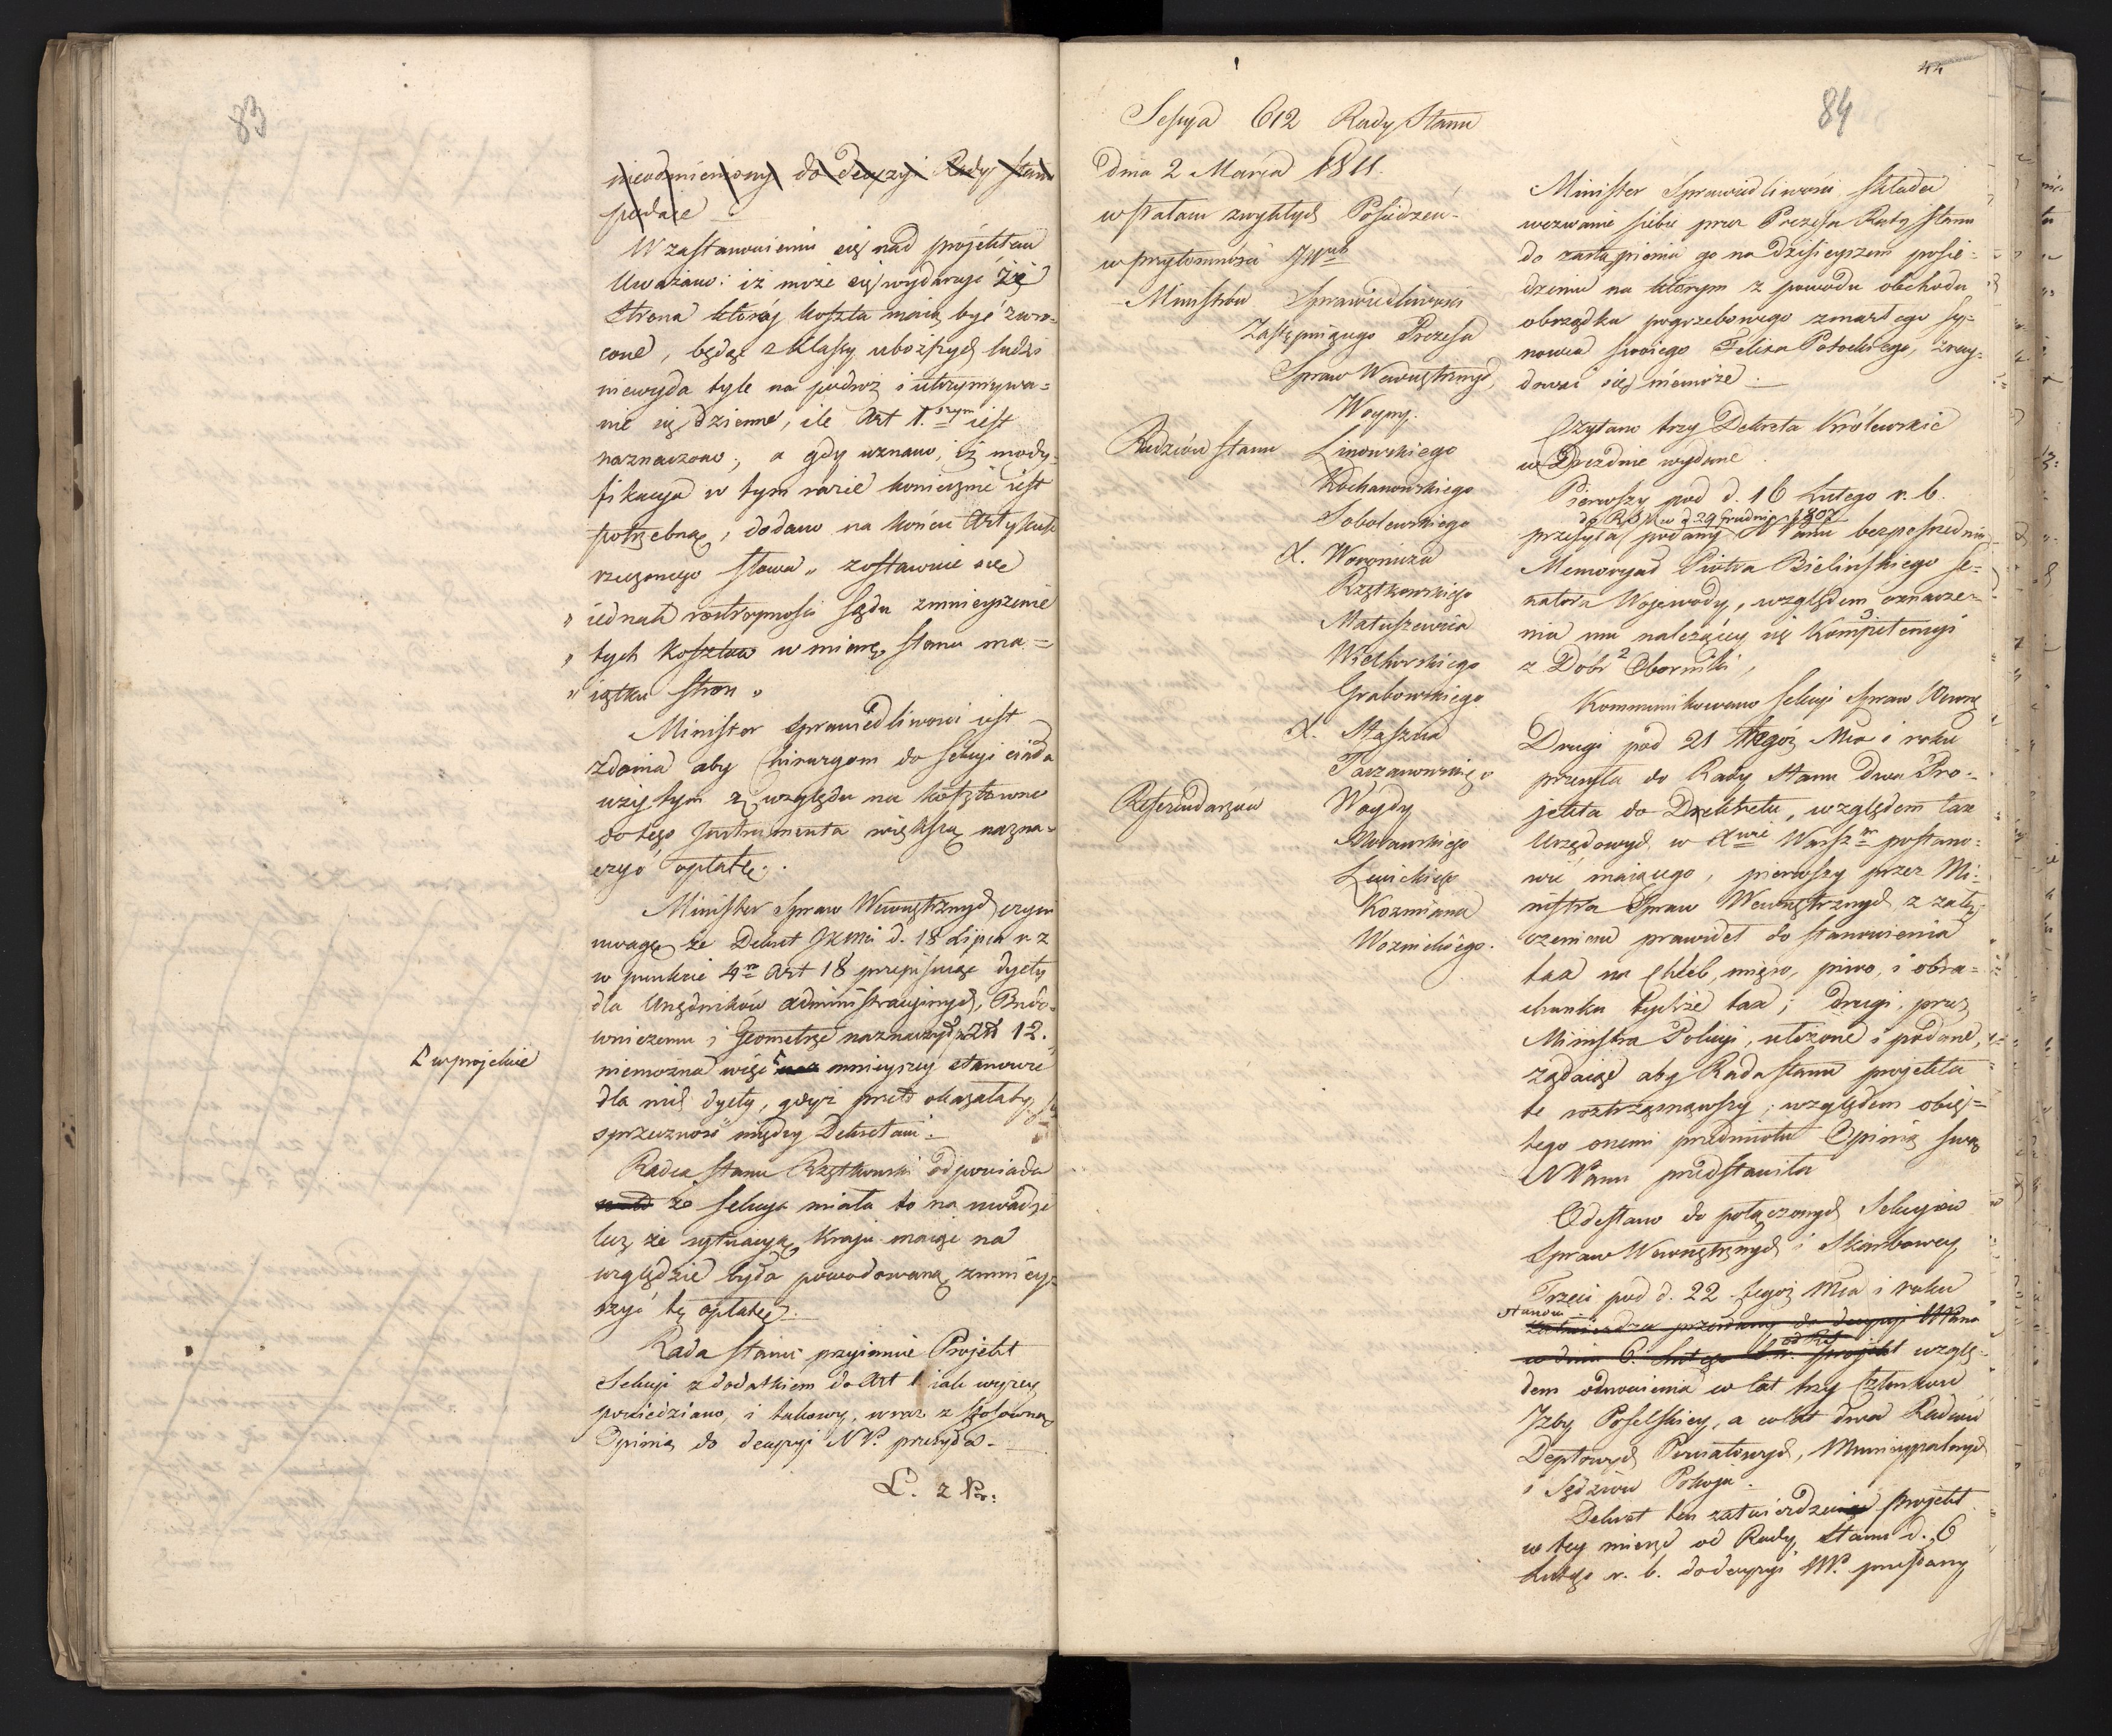 83
nieodmieniony do decyzyi Rady Stanu
podaie
W zastanowieniu się nad projektem
Uważano: iż może się wydarzyć że
Strona któréj koszta maią być zwró-
cone, będąc z klassy uboższych ludzi
niewyda tyle na podróż i utrzymywa-
nie się dzienne, ile Art 1.szym iest
naznaczono; a gdy uznano, iż mody-
fikacya w tym razie koniecznie iest
potrzebną, dodano na końcu Artykułu
rzeczonego słowa „ zostawuie się
„ iednak roztropności Sądu zmnieyszenie
„ tych kosztów w miarę stanu ma-
„ iątku stron „
Minister Sprawiedliwości iest
zdania aby Chirurgom do sekcyi ciała
użytym z względu na kosztowne
do tego Instrumenta większą nazna-
czyć opłatę.
Minister Spraw Wewnętrznych czyni
uwagę że Dekret JKMci d. 18 Lipca r. z
w punkcie 4m Art 18 przepisuiąc dyety
dla Urzędników administracyinych, Budo-
wniczemu i Geometrze naznaczył Złł 12.
niemożna więc mnieyszey stanowić
⌈ w projekcie
dla nich dyety, gdyż przeto okazałaby się
sprzeczność między Dekretami.
Radca Stanu Rzątkowski odpowiada
że Sekcya miała to na uwadze
lecz że sytuacyą Kraju maiąc na
względzie była powodowaną zmniey-
szyć tę opłatę.
Rada Stanu przyimuie Projekt
Sekcyi z dodatkiem do Art 1 iak wyżey
powiedziano, i takowy, wraz z stosowną
Opinią do decyzyi NP. przesyła.
L. z Pr:
44
84
Sessya 612 Rady Stanu
dnia 2 Marca 1811.
w Pałacu zwykłych Posiedzeń
w przytomności JWch
Ministrów Sprawiedliwości
Zastępuiącego Prezesa
Spraw Wewnętrznych
Woyny.
Radzców Stanu Linowskiego
Kochanowskiego
Sobolewskiego
X. Woronicza
Rzątkowskiego
Matuszewica
Wielhorskiego
Grabowskiego
X. Staszica
Tarzanowskiego
Referendarzów Woydy
Morawskiego
Lewickiego
Kozmiana
Woznickiego.
Minister Sprawiedliwości składa
wezwanie siebie przez Prezesa Rady Stanu
do zastąpienia go na dzisieyszem posie-
dzeniu na którym z powodu obchodu
obrządku pogrzebowego zmarłego Sy-
nowca swoiego Felixa Potockiego, znay-
dować się niemoże.
Czytano trzy Dekreta Królewskie
w Dreznie wydane
Pierwszy pod d. 16 Lutego r. b.
do R. S. w d 29 Grudnia 1807
przesyła podany NPanu bezpośrednio
Memoryał Piotra Bielińskiego Se-
natora Wojewody, względem oznacze-
nia mu należącey się Kompetencyi
z Dóbr Oborniki,
Kommunikowano Sekcyi Spraw Wewnę
Drugi pod 21 tegoż Mca i roku
przesyła do Rady Stanu dwa Pro-
jekta do Dekretu, względem tax
Urzędowych w Xwie Warszm postano-
wić maiącego, pierwszy przez Mi-
nistra Spraw Wewnętrznych z załą-
czeniem prawideł do stanowienia
tax na Chleb, mięso, piwo, i obra-
chunku tychże tax; drugi przez
Ministra Policyi, ułożone i podane,
żądaiąc aby Rada Stanu projekta
te roztrząsnąwszy, względem obię-
tego onemi przedmiotu Opinię swą
NPanu przedstawiła
Odesłano do połączonych Sekcyów
Spraw Wewnętrznych i Skarbowey
Trzeci pod d. 22 tegoż Mca i roku
stanowi
zatwierdza przesłany do decyzyi NPana
w dniu 6. Lutego b. r. projekt wzglę-
dem odnowienia co lat trzy Członków
Izby Poselskiey, a co lat dwa Radców
Deptowych Powiatowych, Municypalnych
i Sędziów Pokoju.
Dekret ten zatwierdza projekt
w tey mierze od Rady Stanu d. 6
Lutego r. b. do decyzyi NP. przesłany